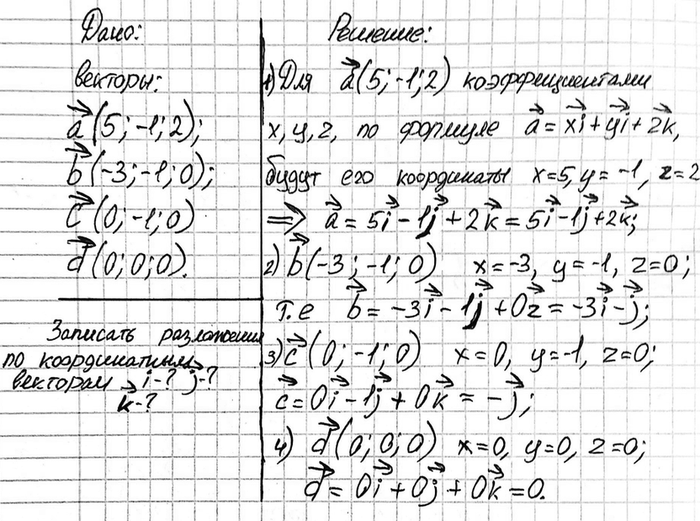 Дано:
векторы:
a⃗(5; -1; 2);
b⃗(-3; -1; 0);
c⃗(0; -1; 0)
d⃗(0; 0; 0).
Записать разложения
по координатным
векторам i⃗-? j⃗-?
k⃗-?
Решение:
1) Для a⃗(5; -1; 2) коэффициентами
x, y, z, по формуле a⃗ = xi⃗ + yi⃗ + zk⃗,
будут его координаты x=5, y= -1, z=2
=> a⃗ = 5i⃗ - 1j⃗ + 2k⃗ = 5i⃗ - 1j⃗ + 2k⃗;
2) b⃗(-3; -1; 0) x=-3, y=-1, z=0;
т.е b⃗ = -3i⃗ - 1j⃗ + 0z⃗ = -3i⃗ - j⃗;
3) c⃗(0; -1; 0) x=0, y=-1, z=0;
c⃗ = 0i⃗ - 1j⃗ + 0k⃗ = -j⃗;
4) d⃗(0; 0; 0) x=0, y=0, z=0;
d⃗ = 0i⃗ + 0j⃗ + 0k⃗ = 0.